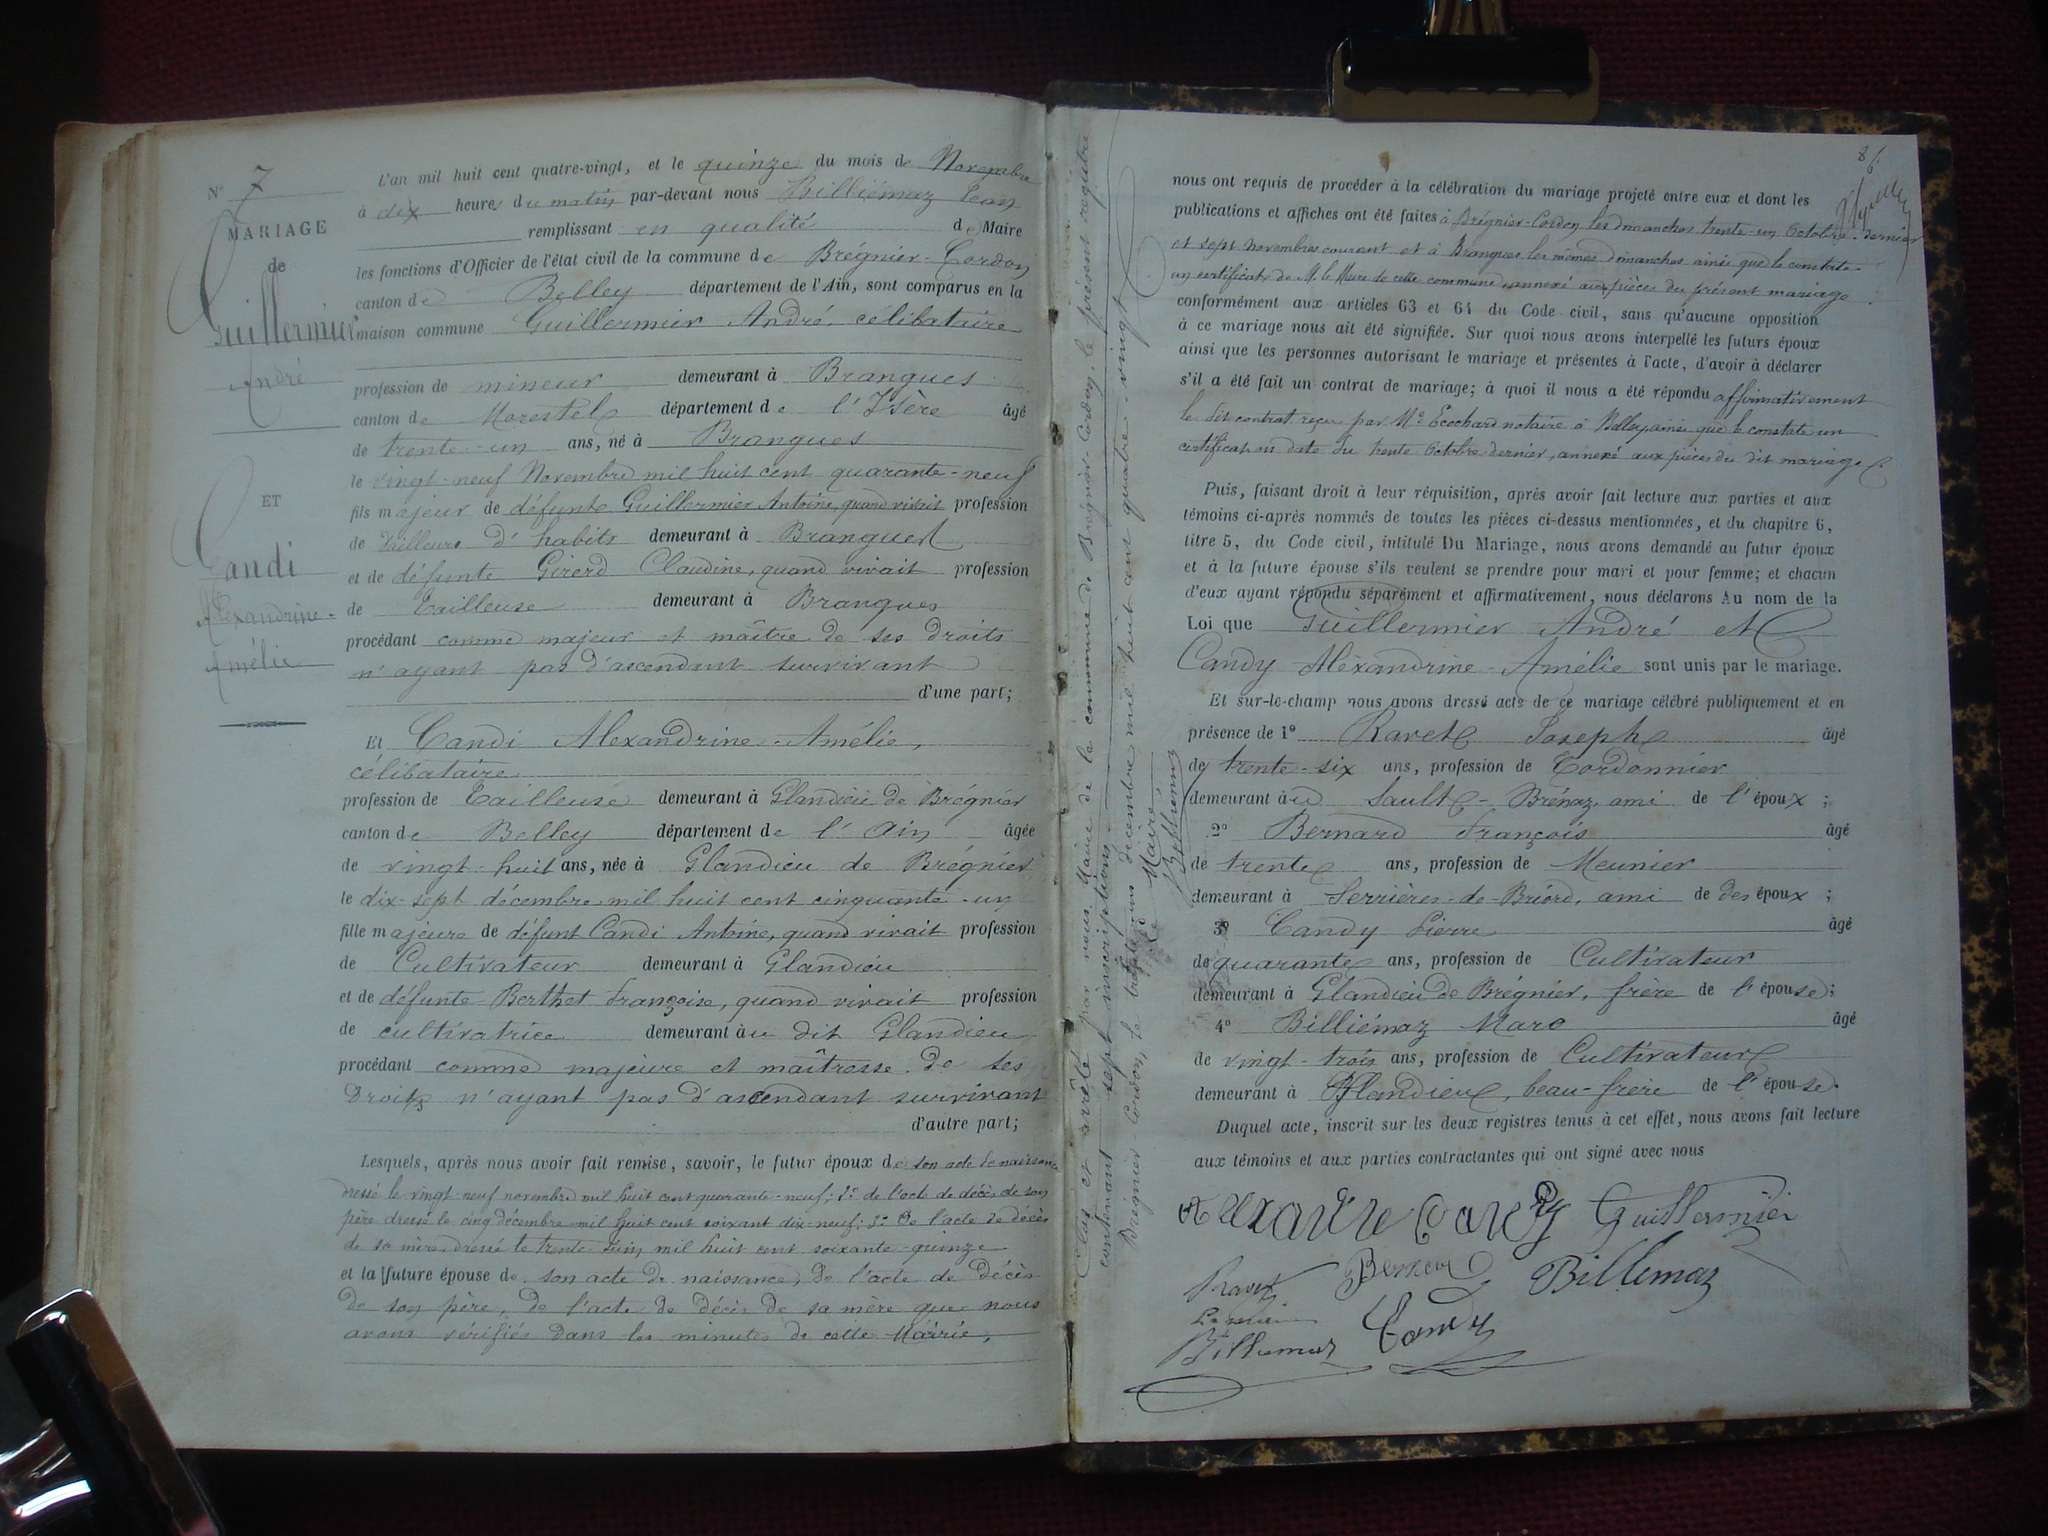 N° 7
MARIAGE
de
Guillermier
André
ET
Candi
Alexandrine-
Amélie
L'an mil huit cent quatre-vingt, et le quinze du mois de Novembre
à dix heures du matin par-devant nous Billiémaz Jean
remplissant en qualité de Maire
les fonctions d'Officier de l'état civil de la commune de Brégnier-Cordon
canton de Belley département de l'Ain, sont comparus en la
maison commune Guillermier André, célibataire
profession de mineur demeurant à Brangues
canton de Morestel département de l'Isère âgé
de trente-un ans, né à Brangues
le vingt-neuf Novembre mil huit cent quarante-neuf
fils majeur de défunte Guillermier Antoine, quand vivait profession
de tailleurs d'habits demeurant à Brangues
et de défunte Girerd Claudine, quand vivait profession
de Tailleuse demeurant à Brangues
procédant comme majeur et maître de ses droits
n'ayant pas d'ascendant survivant
d'une part;
Et Candi Alexandrine-Amélie,
célibataire
profession de Tailleuse demeurant à Glandieu de Brégnier
canton de Belley département de l'Ain âgée
de vingt-huit ans, née à Glandieu de Brégnier
le dix-sept décembre mil huit cent cinquante-un
fille majeure de défunt Candi Antoine, quand vivait profession
de Cultivateur demeurant à Glandieu
et de défunte Berthet Françoise, quand vivait profession
de cultivatrice demeurant au dit Glandieu
procédant comme majeure et maîtresse de ses
Droits n'ayant pas d'ascendant survivant
d'autre part;
Lesquels, après nous avoir fait remise, savoir, le futur époux de son acte de naissance
dressé le vingt-neuf novembre mil huit cent quarante-neuf; 2° de l'acte de décès de son
père dressé le cinq décembre mil huit cent soixant dix-neuf; 3° De l'acte de décès
de sa mère dressé le trente Juin mil huit cent soixante-quinze
et la future épouse de son acte de naissance, de l'acte de décès
de son père, de l'acte de décès de sa mère que nous
avons vérifiés dans les minutes de cette Mairie,
Clos et arrêté par nous Maire de la commune de Brégnier-Cordon, le présent registre
contenant sept inscriptions
Brégnier-Cordon le décembre mil huit cent quatre-vingt
Le Maire
86
nous ont requis de procéder à la célébration du mariage projeté entre eux et dont les
publications et affiches ont été faites à Brégnier-Cordon les dimanches trente-un Octobre dernier
et sept novembre courant et à Brangues les mêmes dimanches ainsi que le constate
un certificat de M. le Maire de cette commune annexé aux pièces du présent mariage
conformément aux articles 63 et 64 du Code civil, sans qu'aucune opposition
à ce mariage nous ait été signifiée. Sur quoi nous avons interpellé les futurs époux
ainsi que les personnes autorisant le mariage et présentes à l'acte, d'avoir à déclarer
s'il a été fait un contrat de mariage; à quoi il nous a été répondu affirmativement
le dit contrat reçu par Me Ecochard notaire à Belley ainsi que le constate un
certificat en date du trente Octobre dernier, annexé aux pièces du dit mariage
Puis, faisant droit à leur réquisition, après avoir fait lecture aux parties et aux
témoins ci-après nommés de toutes les pièces ci-dessus mentionnées, et du chapitre 6,
titre 5, du Code civil, intitulé Du Mariage, nous avons demandé au futur époux
et à la future épouse s'ils veulent se prendre pour mari et pour femme; et chacun
d'eux ayant répondu séparément et affirmativement, nous déclarons Au nom de la
Loi que Guillermier André et
Candy Alexandrine-Amélie sont unis par le mariage.
Et sur-le-champ nous avons dressé acte de ce mariage célébré publiquement et en
présence de 1° Ravet Joseph âgé
de trente-six ans, profession de Cordonnier
demeurant au Sault-Brénaz, ami de l'époux;
2° Bernard François âgé
de trente ans, profession de Meunier
demeurant à Serrières-de-Briord, ami de des époux;
3° Candy Pierre âgé
de quarante ans, profession de Cultivateur
demeurant à Glandieu de Brégnier, frère de l'épouse;
4° Billiémaz Marc âgé
de vingt-trois ans, profession de Cultivateur
demeurant à Glandieu, beau-frère de l'épouse.
Duquel acte, inscrit sur les deux registres tenus à cet effet, nous avons fait lecture
aux témoins et aux parties contractantes qui ont signé avec nous
Guillermier
Ravet Bernard Billiemaz
Billiemaz Candy